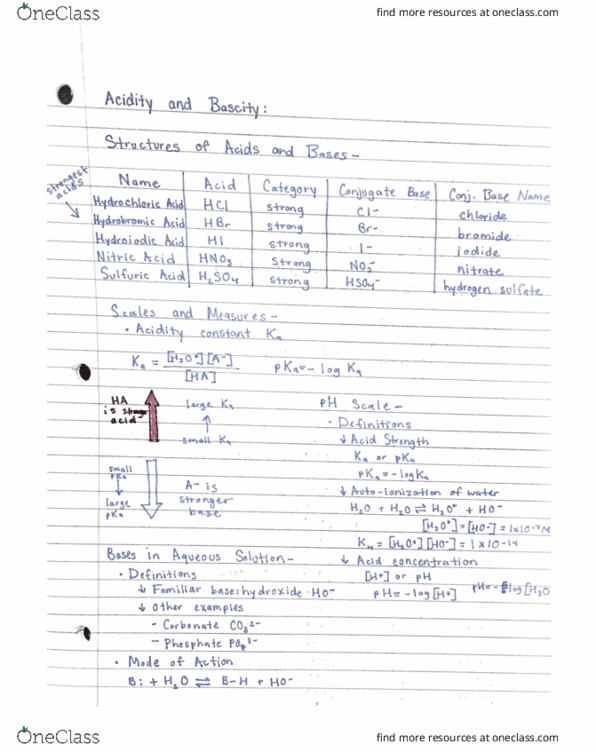 OneClass
find more resources at oneclass.com
Acidity and Bascity:
Structures of Acids and Bases -
strongest acids
Name | Acid | Category | Conjugate Base | Conj. Base Name
Hydrochloric Acid | HCl | strong | Cl- | chloride
Hydrobromic Acid | HBr | strong | Br- | bromide
Hydroiodic Acid | HI | strong | I- | iodide
Nitric Acid | HNO3 | Strong | NO3- | nitrate
Sulfuric Acid | H2SO4 | strong | HSO4- | hydrogen sulfate
Scales and Measures -
• Acidity constant Ka
Ka = [H3O+][A-] / [HA]
pKa = - log Ka
HA is stronger acid
large Ka
↑
small Ka
small pKa
↓
large pKa
A- is
stronger
base
pH Scale -
• Definitions
↓ Acid Strength
Ka or pKa
pKa = - logKa
↓ Auto-ionization of water
H2O + H2O ⇌ H3O+ + HO-
[H3O+] = [HO-] = 1x10-7M
Kw = [H3O+][HO-] = 1 x 10-14
↓ Acid concentration
[H+] or pH
pH = - log[H+]
pH = - log[H3O
Bases in Aqueous Solution -
• Definitions
↓ Familiar base: hydroxide HO-
↓ other examples
- Carbonate CO3 2-
- Phosphate PO4 3-
• Mode of Action
B: + H2O ⇌ B-H + HO-
OneClass
find more resources at oneclass.com